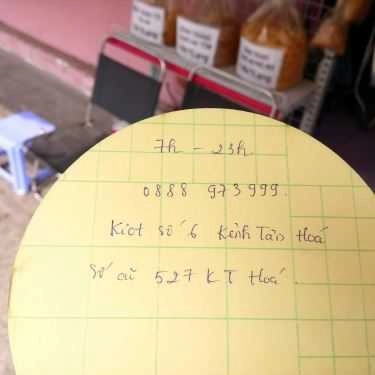 7h - 23h
0888 973 999.
Kiot số 6 Kênh Tân Hoá
Số cũ 527 KT Hoá.